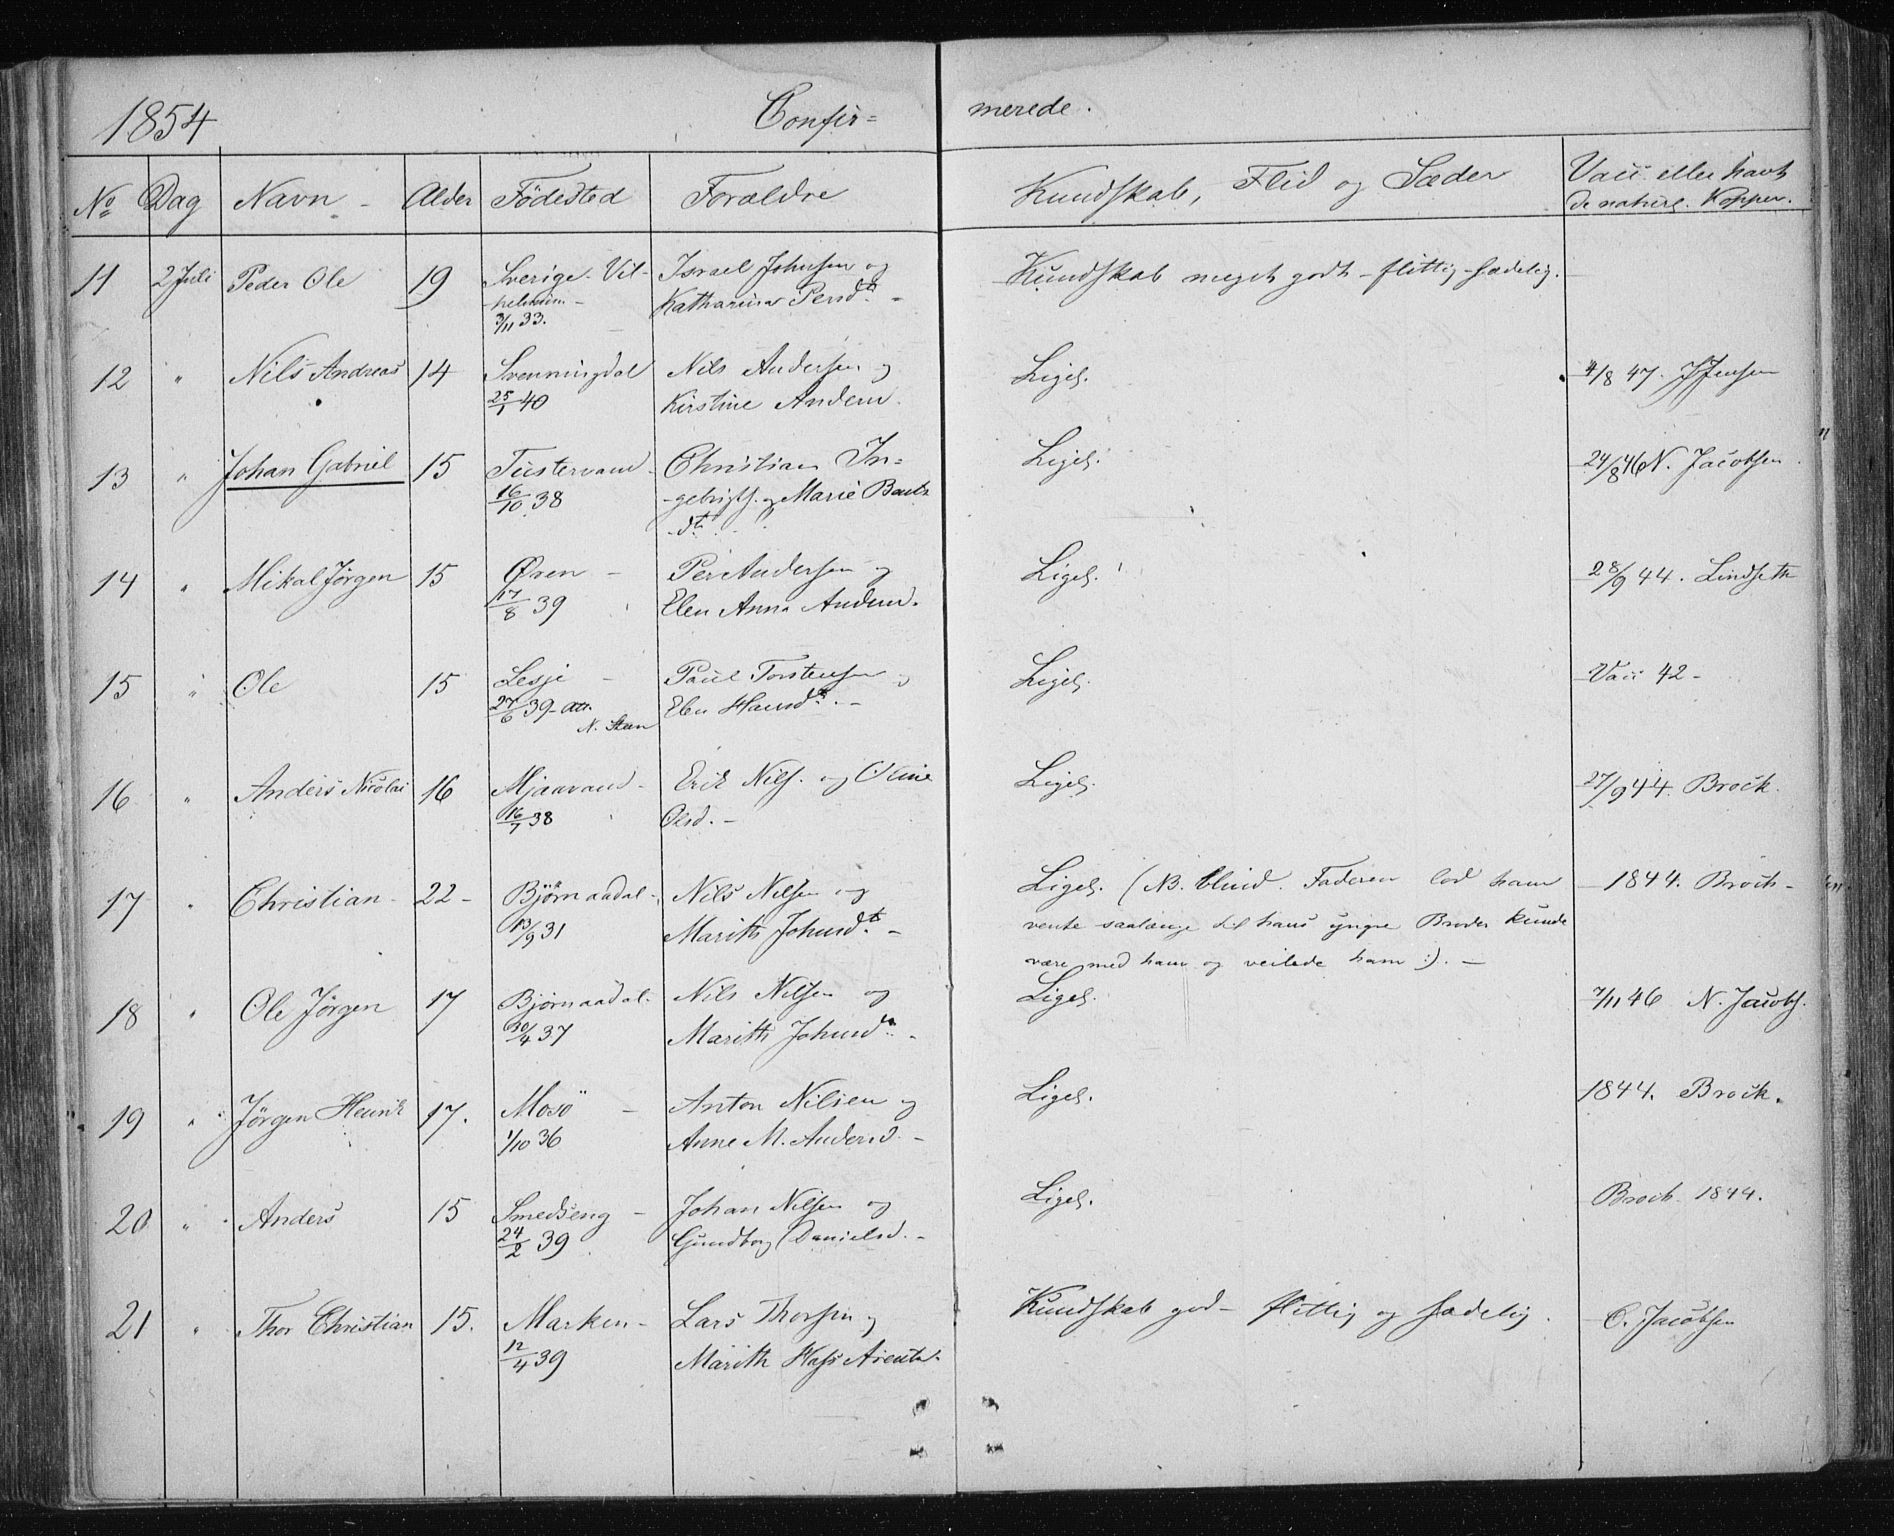 1854 Confir= merede.
No Dag Navn Alder Födested Forældre Kundskab, Flid og Sæder Vacc. eller havt
de naturl. Kopper.
11 2 Juli Peder Ole 19 Sverige Vil- Israel Johnsen og Kundskab meget godt - flittig - sædelig.
Katharina Persdt. -
3/11 33.
12 " Nils Andreas 14 Svenningdal Nils Andersen og Ligel. 4/8 47. JJensen
25/1 40 Kirstine Andersd.
13 " Johan Gabriel 15 Tustervand Christian In= Ligel. 24/8 46 N. Jacobsen
16/10 38 gebrigts. og Marie Bents
dt.
14 " Mikal Jörgen 15 Øren - Per Andersen og Ligel. 28/9 44. Lindseth
17/8 39 Elen Anna Andersd.
15 " Ole 15 Lesje - Paul Torstensen og Ligel. Vacc 42 -
27/6 39 - Att. Elen Hansdt. -
N. Steen
16 " Anders Nicolai 16 Mjaavand - Erik Nils. og Ligel. 27/9 44. Brock.
16/7 38 Olsd. -
17 " Christian - 22 - Bjørnaadal - Nils Nilsen og Ligel. (NB. blind. Faderen lod ham - 1844. Broch -
13/9 31 Marith Johnsdt. - vente saalænge til hans yngre Broder kunde
være med ham og veilede ham :). -
18 " Ole Jörgen 17 Bjørnaadal. Nils Nilsen og Ligel. 7/11 46 N. Jacobs.
30/4 37 Marith Johnsdt. -
19 " Jörgen Henrik 17. Mosö - Anton Nilsen og Ligel. 1844. Brock.
1/10 36 Anne M. Andersd. -
20 " Anders 15 Smedseng - Johan Nilsen og Ligel. Broch 1844.
24/2 39 Gundborg Danielsd. -
21 " Thor Christian 15. Marken - Lars Thorsen og Kundskab god - flittig og sædelig. C. Jacobsen
12/4 39 Marith